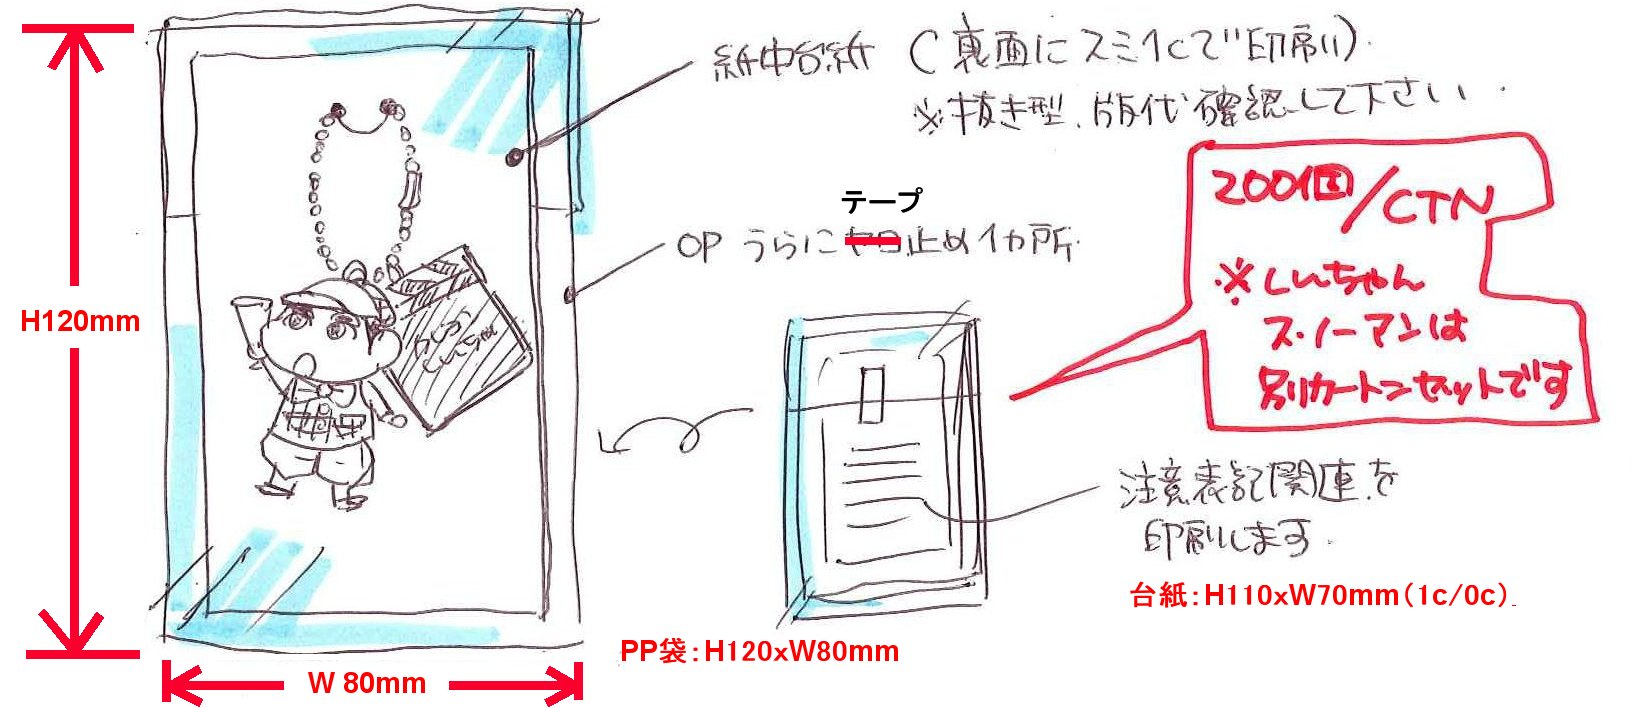 紙中台紙 (裏面にスミ1cで印刷)
※抜き型、版代確認して下さい.
H120mm
テープ
OP うらに止め1カ所.
200個/CTN
※しいちゃん
スノーマンは
別カートンセットです
注意表記関連を
印刷します.
台紙:H110xW70mm(1c/0c)
PP袋:H120xW80mm
W 80mm